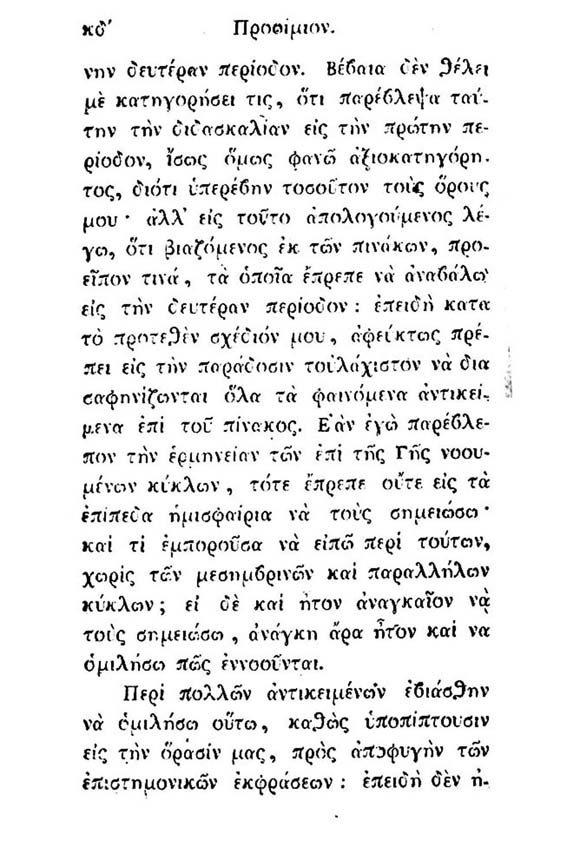 κδʹ Προοίμιον.
νην δευτέραν περίοδον. Βέβαια δὲν θέλει
μὲ κατηγορήσει τις, ὅτι παρέβλεψα ταύ-
την τὴν διδασκαλίαν εἰς τὴν πρώτην πε-
ρίοδον, ἴσως ὅμως φανῶ ἀξιοκατηγόρη-
τος, διότι ὑπερέβην τοσοῦτον τοὺς ὅρους
μου· ἀλλ' εἰς τοῦτο ἀπολογούμενος λέ-
γω, ὅτι βιαζόμενος ἐκ τῶν πινάκων, προ-
εῖπον τινά, τὰ ὁποῖα ἔπρεπε νὰ ἀναβάλω
εἰς τὴν δευτέραν περίοδον: ἐπειδὴ κατα
τὸ προτεθὲν σχέδιόν μου, ἀφεύκτως πρέ-
πει εἰς τὴν παράδοσιν τοὐλάχιστον νὰ δια
σαφηνίζωνται ὅλα τὰ φαινόμενα ἀντικεί-
μενα ἐπὶ τοῦ πίνακος. Εὰν ἐγὼ παρέβλε-
πον τὴν ἑρμηνείαν τῶν ἐπὶ τῆς Γῆς νοου-
μένων κύκλων, τότε ἔπρεπε οὔτε εἰς τὰ
ἐπίπεδα ἡμισφαίρια νὰ τοὺς σημειώσω·
καὶ τί ἐμποροῦσα νὰ εἰπῶ περὶ τούτων,
χωρὶς τῶν μεσημβρινῶν καὶ παραλλήλων
κύκλων; εἰ δὲ καὶ ἦτον ἀναγκαῖον νὰ
τοὺς σημειώσω, ἀνάγκη ἄρα ἦτον καὶ να
ὁμιλήσω πῶς ἐννοοῦνται.
Περὶ πολλῶν ἀντικειμένων ἐβιάσθην
νὰ ὁμιλήσω οὕτω, καθὼς ὑποπίπτουσιν
εἰς τὴν ὅρασίν μας, πρὸς ἀποφυγὴν τῶν
ἐπιστημονικῶν ἐκφράσεων: ἐπειδὴ δὲν ἠ-